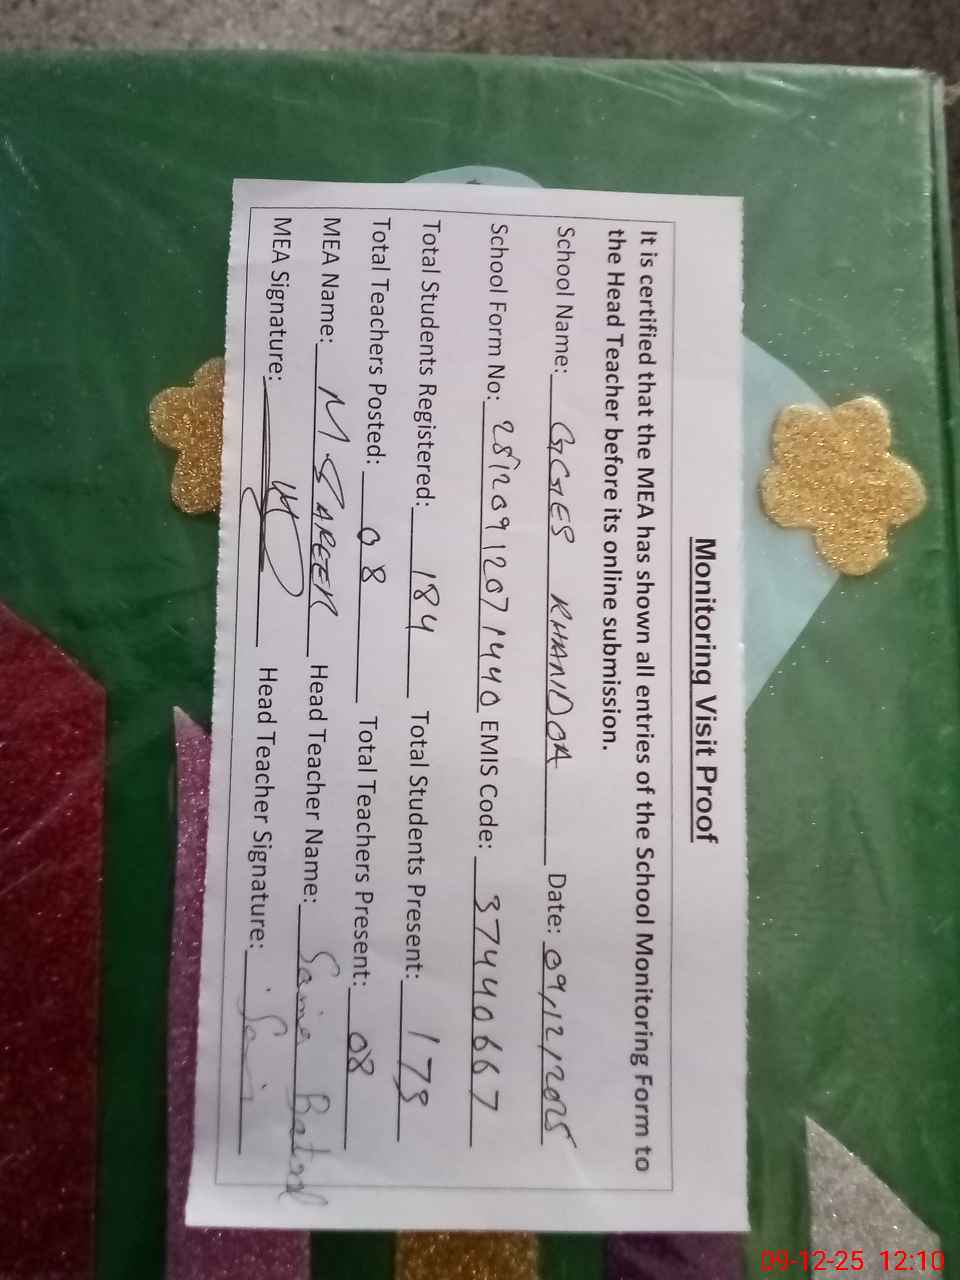 Monitoring Visit Proof
It is certified that the MEA has shown all entries of the School Monitoring Form to
the Head Teacher before its online submission.
School Name: GGES KHANDOA Date: 09/12/2025
School Form No: 28120912071440 EMIS Code: 37440667
Total Students Registered: 184 Total Students Present: 178
Total Teachers Posted: 08 Total Teachers Present: 08
MEA Name: M. ZAREEN Head Teacher Name: Samia Batool
MEA Signature: Head Teacher Signature:
09-12-25 12:10